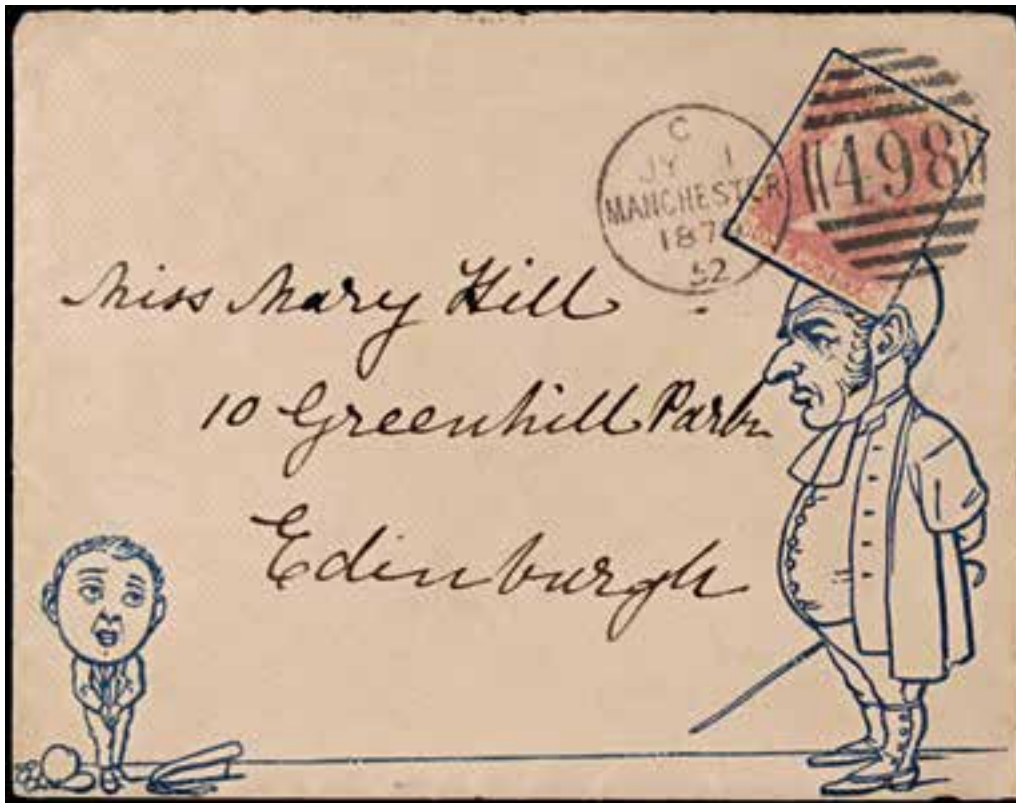 C
JY 1
MANCHESTER
187
52
498
Miss Mary Hill
10 Greenhill Park
Edinburgh